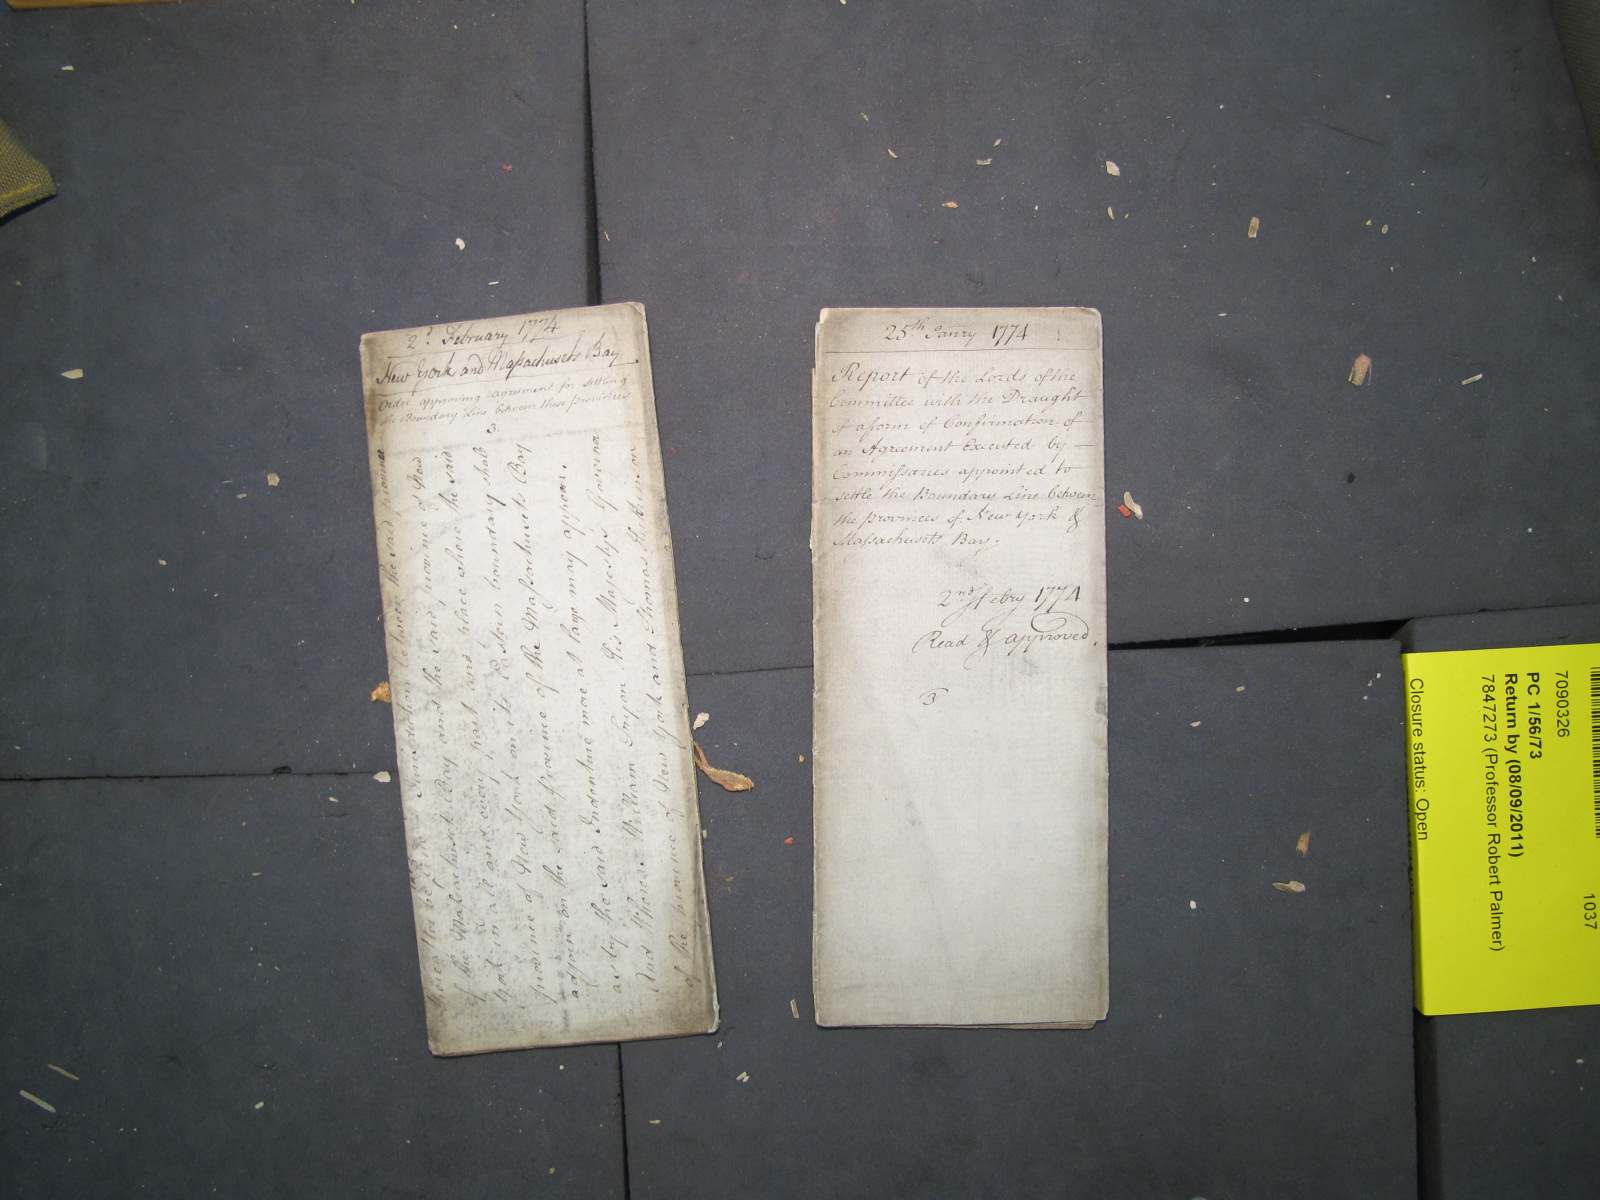 2d. February 1774
New York and Massachusets Bay
Order approving agreement for settling
the Boundary Line between those provinces
3.
between the said province
of the Massachusets Bay and the said province of New
York in all and every part and place where the said
province of New York on its Eastern boundary shall
adjoin on the said province of the Massachusets Bay
as by the said Indenture more at large may appear.
And Whereas William Tryon His Majestys Governor
of the province of New York and Thomas Hutchinson
25th Janry 1774
Report of the Lords of the
Committee with the Draught
of a form of Confirmation of
an Agreement Executed by
Commissaries appointed to
settle the Boundary Line between
the provinces of New York &
Massachusets Bay.
2nd Febry 1774
Read & approved.
3
1037
7090326
PC 1/56/73
Return by (08/09/2011)
7847273 (Professor Robert Palmer)
Closure status: Open